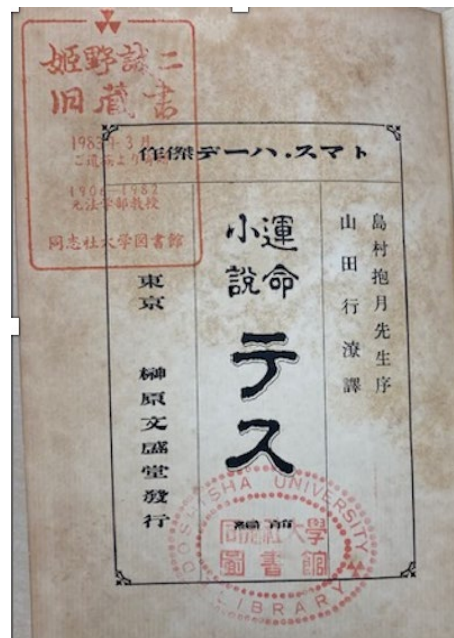 姫野誠二
旧蔵書
1983年3月
ご遺族より
1906-1982
元法学部教授
同志社大学図書館
トマス・ハーデ傑作
島村抱月先生序
山田行潦譯
運命
小説
テス
前編
東京 榊原文盛堂發行
DOSHISHA UNIVERSITY
同志社大學
圖書館
LIBRARY